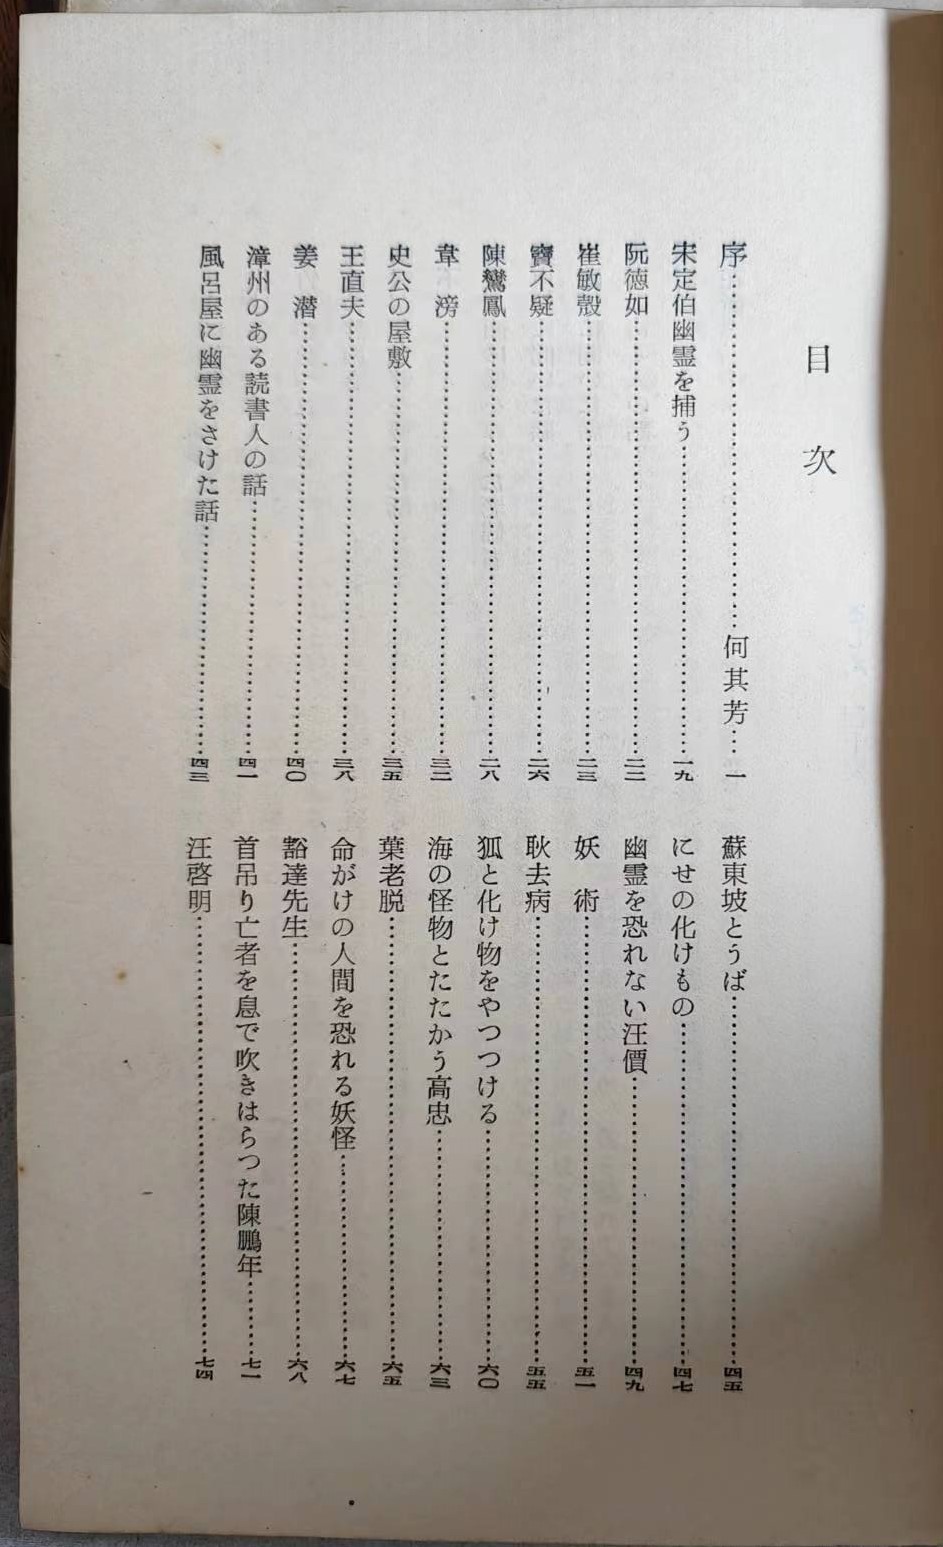 目次
序……何其芳…一
宋定伯幽霊を捕う……一九
阮徳如……二二
崔敏殻……二三
竇不疑……二六
陳鸞鳳……二八
韋滂……三二
史公の屋敷……三五
王直夫……三八
姜潜……四〇
漳州のある読書人の話……四一
風呂屋に幽霊をさけた話……四三
蘇東坡とうば……四五
にせの化けもの……四七
幽霊を恐れない汪價……四九
妖術……五一
耿去病……五五
狐と化け物をやつつける……六〇
海の怪物とたたかう高忠……六三
葉老脱……六五
命がけの人間を恐れる妖怪……六七
豁達先生……六八
首吊り亡者を息で吹きはらつた陳鵬年……七一
汪啓明……七四